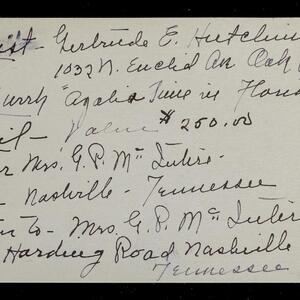 Gertrude E. Hutchins
1032 N. Euclid Av Oak
"Azalia Time in Flori
Value $250.00
Mrs. G. P. Mc Intire -
- Nashville - Tennessee
To - Mrs. G. P. Mc Intire
Harding Road Nashville
Tennessee